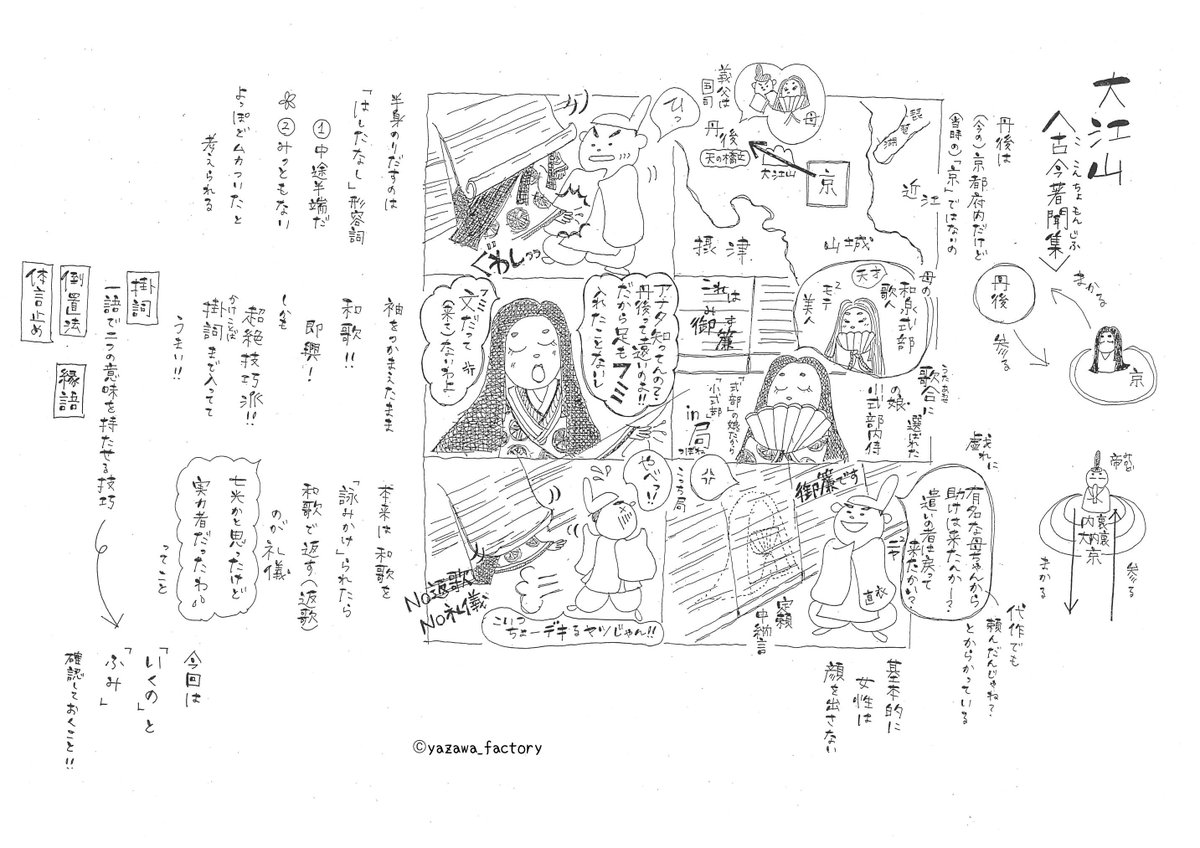 大江山
古今著聞集
ここんちょもんじふ
まかる
丹後
参る
京
帝
参る
内裏
大内裏
京
まかる
丹後は
(今の)京都府内だけど
(当時の)「京」ではないの
琵琶湖
近江
京
大江山
丹後
天の橋立
義父は
国司
母
山城
摂津
母の
天才
歌人
和泉式部
モテ²
美人
これは
み す
御簾
歌合に
うたあわせ
選ばれた
の娘
小式部内侍
「式部」の娘だから
「小式部」
in 局
つぼね
戯れに
有名な母ちゃんから
助けは来たんかー?
遣いの者は戻って
来たかい?
ニヤ²
代作でも
頼んだんじゃね?
とからかっている
御簾です
直衣
定頼
中納言
こっち局
基本的に
女性は
顔を出さない
ひっ
ぐわしっっ
アナタ知ってんの?
丹後って遠いのよ!!
だから足もフミ
入れたことないし
文だって
フミ
(来て)ないわよ
やべっ!!
こいつ
ちょーデキるヤツじゃん!!
NO返歌
NO礼儀
半身のりだすのは
「はしたなし」形容詞
①中途半端だ
②みっともない
よっぽどムカついたと
考えられる
袖をつかまえたまま
和歌!!
即興!
しかも
超絶技巧派!!
掛詞まで入ってて
かけことば
うまい!!
掛詞
一語で二つの意味を持たせる技巧
倒置法
縁語
体言止め
本来は和歌を
「詠みかけ」られたら
和歌で返す(返歌)
のが礼儀
七光かと思ったけど
実力者だったわ。
ってこと
今回は
「いくの」と
「ふみ」
確認しておくこと!!
©yazawa_factory